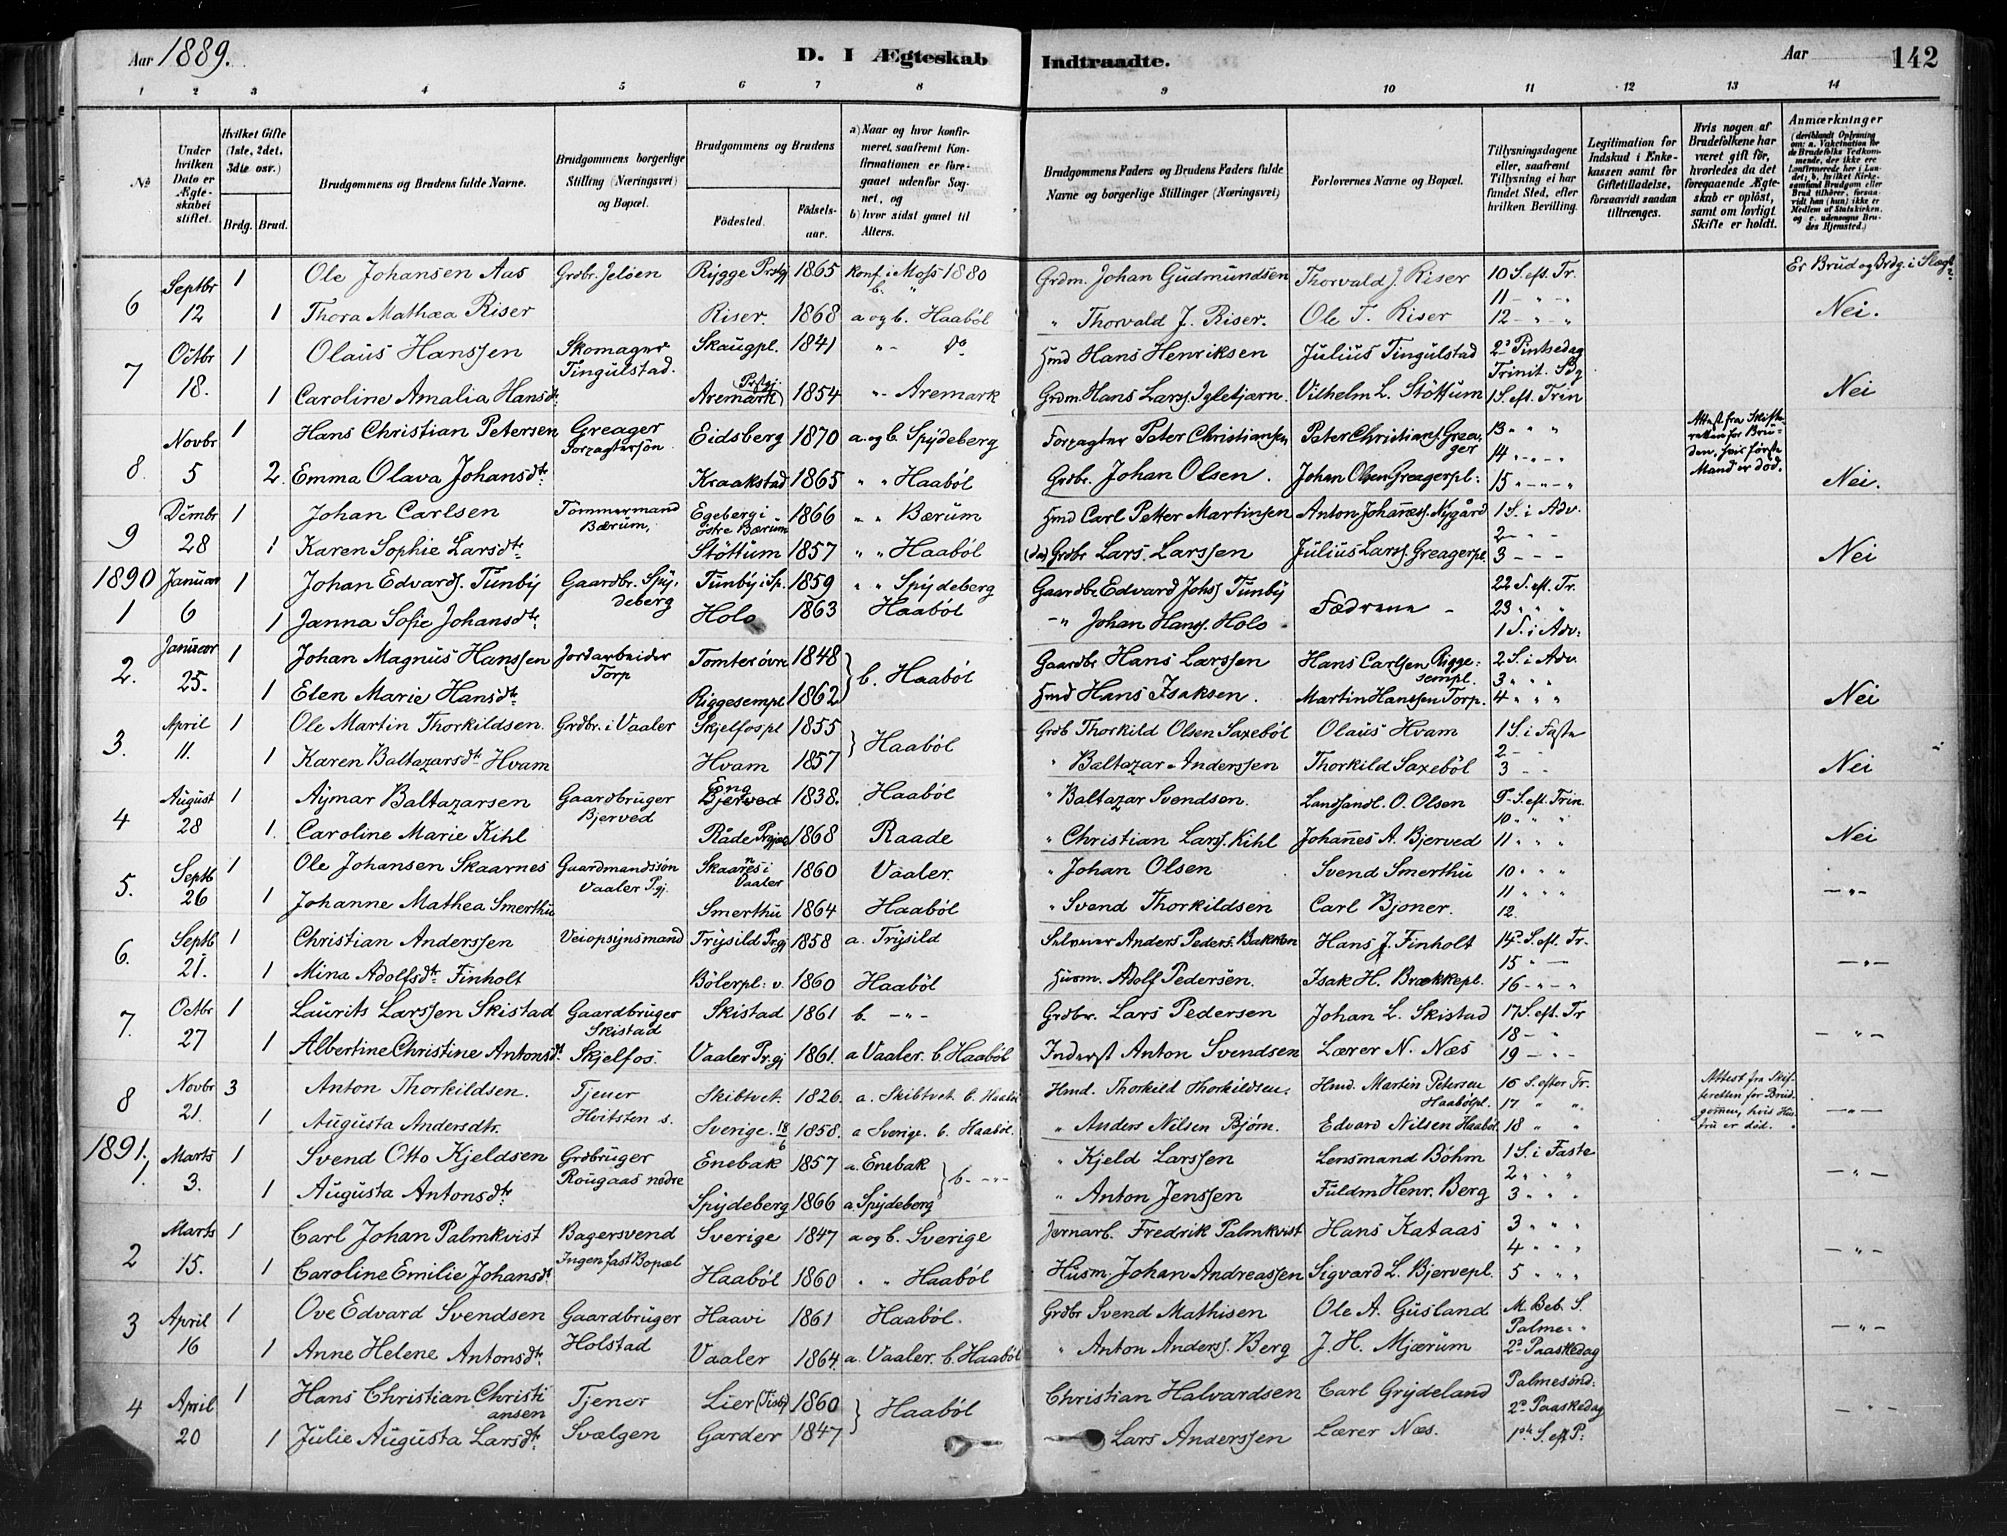 Aar 1889. D. I Ægteskab Indtraadte. Aar 142
1 2 3 4 5 6 7 8 9 10 11 12 13 14
№
Under hvilken Dato er Ægteskabet stiftet.
Hvilket Gifte (1ste, 2det, 3die osv.)
Brdg. Brud.
Brudgommens og Brudens fulde Navne.
Brudgommens borgerlige Stilling (Næringsvei) og Bopæl.
Brudgommens og Brudens
Fødested. Fødselsaar.
a) Naar og hvor konfirmeret, saafremt Konfirmationen er foregaaet udenfor Sognet, og
b) hvor sidst gaaet til Alters.
Brudgommens Faders og Brudens Faders fulde Navne og borgerlige Stillinger (Næringsvei)
Forlovernes Navne og Bopæl.
Tillysningsdagene eller, saafremt Tillysning ei har fundet Sted, efter hvilken Bevilling.
Legitimation for Indskud i Enkekassen samt for Giftetilladelse, forsaavidt saadan tiltrænges.
Hvis nogen af Brudefolkene har været gift før, hvorledes da det foregaaende Ægteskab er opløst, samt om lovligt Skifte er holdt.
Anmærkninger (deriblandt Oplysning om: a. Vakcination for de Brudefolks Vedkommende, der ikke ere konfirmerede her i Landet; b. hvilket Kirkesamfund Brudgom eller Brud tilhører, forsaavidt han (hun) ikke er Medlem af Statskirken, og c. udensogns Brudes Hjemsted.)
Er Brud og Brdg. i Slægt?
6 Septbr 1 Ole Johansen Aas Grdbr. Jeløen Rygge Prstgj 1865 Konf. i Moss 1880 Grdm. Johan Gudmundsen Thorvald J. Riser 10 S. eft. Tr.
b. " 11 - " - "
12 1 Thora Mathæa Riser Riser. 1868 a og b. Haabøl " Thorvald J. Riser. Ole T. Riser 12 - " - " Nei.
7 Octbr 1 Olaus Hanssen Skomager Tingulstad. Skaugpl. 1841 " - Do Hmd Hans Henriksen Julius Tingulstad 2d Pintsedag
Trinit. Sdg
18. 1 Caroline Amalia Hansdtr Aremark Prstgj. 1854 " - Aremark Grdm. Hans Larss. Igletjærn. Vilhelm L. Støttum 1 S. eft. Trin Nei
8 Novbr 1 Hans Christian Petersen Greager Forpagtersøn Eidsberg 1870 a. og b. Spydeberg Forpagter Peter Christiansen Peter Christians. Greager 13 " " "
Attest fra Skifteretten for Bruden, hvis første Mand er død.
14 " - " - "
5 2. Emma Olava Johansdtr. Kraakstad 1865 " " Haabøl Grdbr. Johan Olsen. Johan Olsen Greagerpl: 15 " - " - " Nei.
9 Dcmbr 1 Johan Carlsen Tømmermand Bærum. Egeberg i østre Bærum 1866 " " Bærum Hmd Carl Petter Martinsen Anton Johaness. Nygård 1 S. i Adv.
2 - " -
28 1 Karen Sophie Larsdtr Støttum 1857 " " Haabøl (død) Grdbr Lars Larssen Julius Larss. Greagerpl 3 - - - Nei
1890
1 Januar 1 Johan Edvards. Tunby Gaardbr. Spydeberg Tunby i Sp. 1859 " " Spydeberg Gaardbr. Edvard Johs. Tunby Fædrene - 22 S. eft. Tr.
23 " " "
6 1 Janna Sofie Johansdtr. Holo 1863 Haabøl - " Johan Hans. Holo 1 S. i Adv:
2. Januar 1 Johan Magnus Hanssen Jordarbeider Torp Tomter øvre 1848 b. Haabøl Gaardbr Hans Larssen Hans Carlsen Riggesempl. 2 S. i Adv.
3 " " "
25. 1 Elen Marie Hansdtr Riggesempl 1862 Hmd Hans Isaksen. Martin Hanssen Torp. 4 " " " Nei
3. April 1 Ole Martin Thorkildsen. Grdbr. i Vaaler Skjelfospl 1855 Haabøl Grdb Thorkild Olsen Saxebøl Olaus Hvam 1 S. i Faste
2 - "
11. 1 Karen Baltazarsdtr Hvam Hvam 1857 " Baltazar Anderssen Thorkild Saxebøl 3 - - Nei
4 August 1 Aymar Baltazarsen Gaardbruger Bjerved Eng Bjerved 1838. Haabøl " Baltazar Svendsen. Landhandl. O. Olsen 9 - S. eft. Trin.
10 " " "
28 1. Caroline Marie Kihl Råde Prgjæld 1868 Raade " Christian Larss. Kihl Johanes A. Bjerved 11 " " " Nei
5. Septb 1 Ole Johansen Skaarnes Gaardmandssøn Vaaler P.gj. Skaarnes i Vaaler 1860 Vaaler. " Johan Olsen Svend Smerthu 10 " " "
11 " " "
26 1 Johanne Mathea Smerthu Smerthu 1864 Haabøl " Svend Thorkildsen Carl Bjoner. 12. - " -
6. Septb 1 Christian Anderssen Veiopsynsmand Trysild Pr.gj 1858 a. Trysild Selveier Anders Peders. Bakken Hans J. Finholt 14d S. eft. Tr.
15 " -
21. 1 Mina Adolfsdtr Finholt Bølerpl: v. 1860 Haabøl Husm. Adolf Pedersen. Isak H. Brækkepl. 16 - " - " - " -
7. Octbr 1 Laurits Larssen Skistad Gaardbruger Skistad Skistad 1861 b. - " - Grdbr. Lars Pedersen Johan L. Skistad 17 S. eft. Tr
18 - "
27 1 Albertine Christine Antonsdt Skjelfos. Vaaler Pr.gj 1861. a Vaaler. b. Haabøl Inderst Anton Svendsen Lærer N. Næs 19 - " - - " -
8 Novbr 3 Anton Thorkildsen. Tjener Hvitsten s. Skibtvet. 1826. a. Skibtvet b. Haabøl Hmd. Thorkild Thorkildsen. Hmd. Martin Petersen Haabølpl. 16 S. efter Tr.
Attest fra Skifteretten for Brudgommen, hvis Hustru er død.
17 " "
21. 1 Augusta Andersdtr. Sverige. 18/6 1858. a Sverige. b. Haabøl. " Anders Nilsen Bjørn. Edvard Nilsen Haabøl. 18 " " - " -
1891.
1. Marts 1 Svend Otto Kjeldsen Grdbruger Rougaas nedre Enebak 1857 a. Enebak b. - " - " Kjeld Larssen Lensmand Bøhm 1 S. i Faste
2 " "
3. 1 Augusta Antonsdtr Spydeberg 1866 a Spydeberg " Anton Jenssen Fuldm Henr. Berg 3 " " " - " -
2 Marts 1 Carl Johan Palmkvist Bagersvend Ingen fast Bopæl Sverige 1847 a og b. Sverige Jernarb. Fredrik Palmkvist Hans Kataas 3 " " "
4 " " "
15. 1 Caroline Emilie Johansdt Haabøl 1860 " " Haabøl Husm. Johan Andreassen Sigvard L. Bjervepl. 5 " " " - " -
3 April 1 Ove Edvard Svendsen Gaardbruger Holstad Haavi 1861 Haabøl. Grdbr Svend Mathisen Ole A. Gusland M. Beb. S.
Palme - "
16 1 Anne Helene Antonsdtr. Vaaler 1864. a. Vaaler. b. Haabøl " Anton Anderss. Berg J. H. Mjærum 2d Paaskedag - " -
4 April 1 Hans Christian Christiansen Tjener Svælgen Lier 1860 Haabøl Christian Halvardsen Carl Grydeland Palmesønd:
2d Paaskedag
20 1 Julie Augusta Larsdtr. Garder 1847 Lars Anderssen Lærer Næs. 1ste S. eft P: - " -